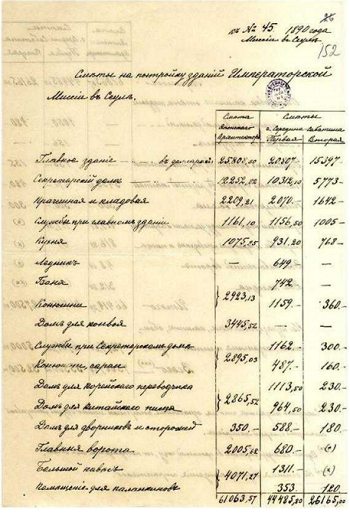 къ № 45. 1890 года
Миссіи въ Сеулѣ
152
Смѣты на постройку зданій Императорской
Миссіи въ Сеулѣ.
Смѣта Смѣты
Архитектора Первая Вторая
Главное зданіе въ долларахъ 20807.- 15547.-
Секретарскій домъ 5773-
Прачешная и кладовая 2209,21 2070.- 1642-
Службы при главномъ зданіи 1161,10 1156,50 1005-
Кухня 1075,55 931,20 768-
Ледникъ - 649.- -
Баня 742- -
Конюшни 2923,13 1159.- 360.-
Домъ для конвоя 3445,52 - -
Службы при Секретарскомъ домѣ 1162.- 300.-
Конюшни, сараи 2895,03 487.- 160.-
Домъ для корейскаго переводчика 1113,50 230.-
Домъ для китайскаго 2865,52 964,50 230.-
Домъ для дворниковъ и сторожей 350.- 588.- 180.-
Главныя ворота 2005,68 680.- (")
Большой навѣсъ 1311.- (")
Помѣщеніе для паланкиновъ 4071,27 353 120.
61063,57 44485,20 26165,00